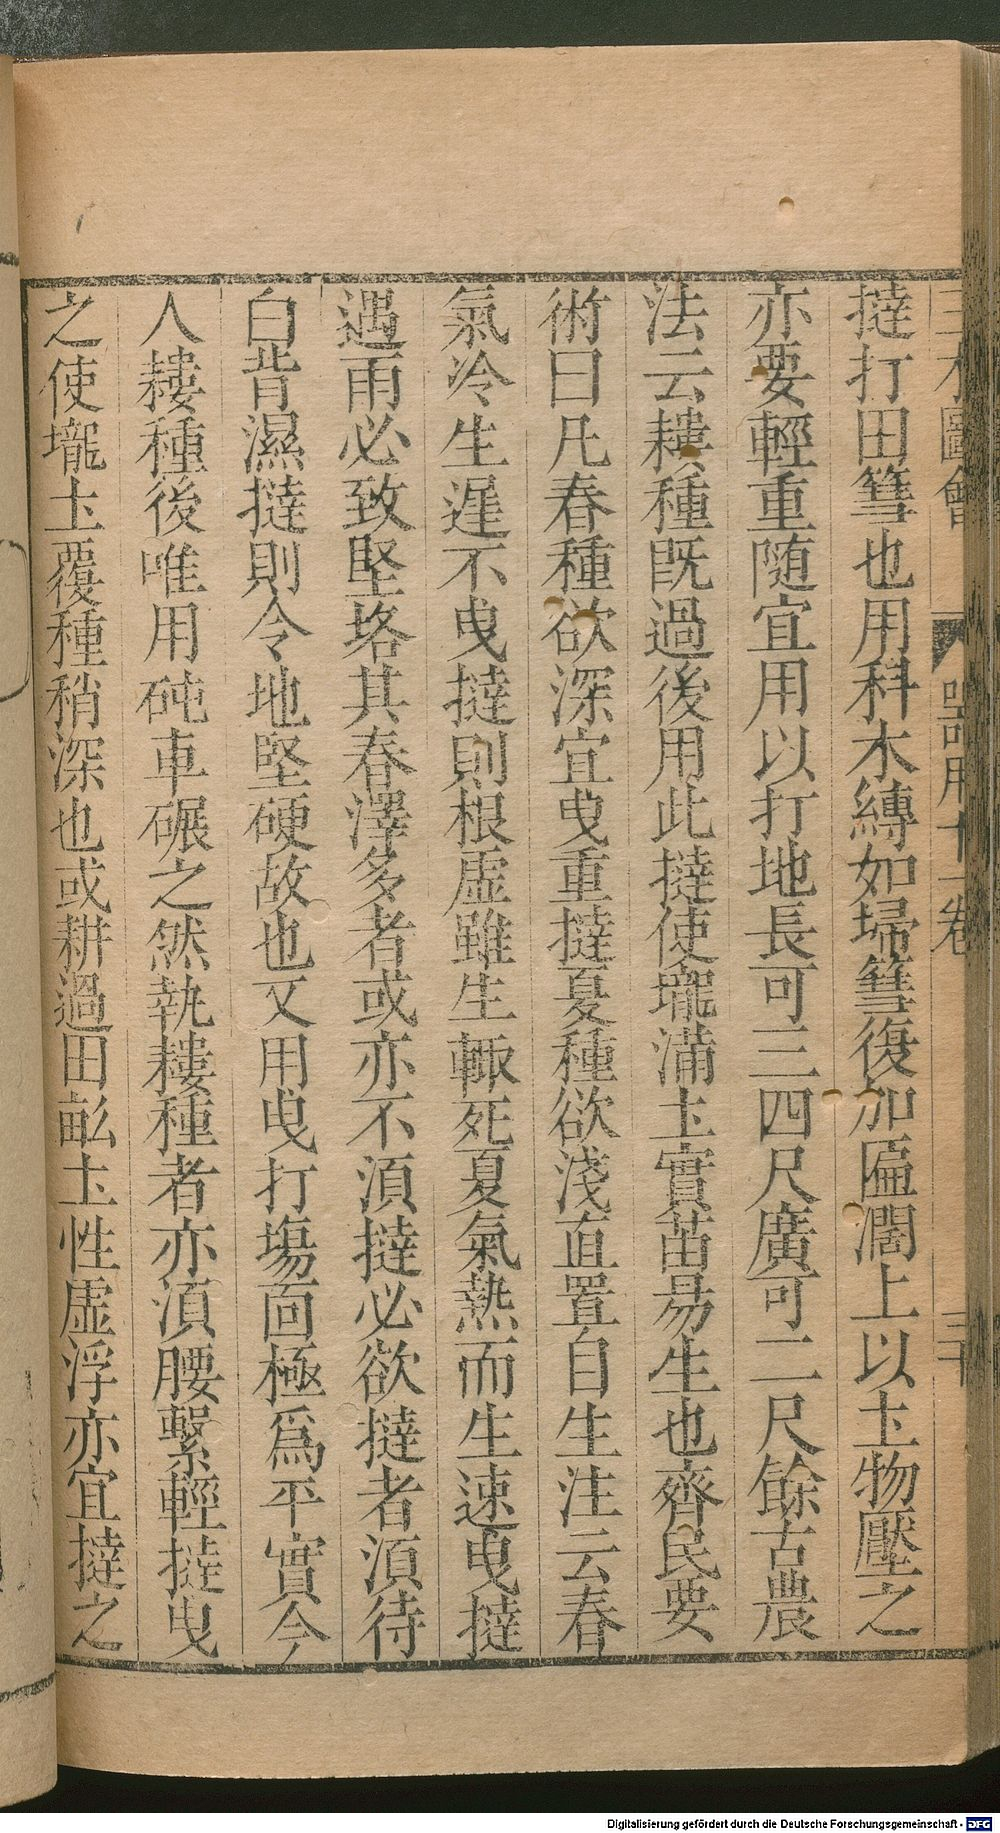 三才圖會 器用十一卷 三十
撻打田篲也用科木縛如埽篲復加匾濶上以土物壓之
亦要輕重随宜用以打地長可三四尺廣可二尺餘古農
法云耬種旣過後用此撻使壠滿土實苗昜生也齊民要
術曰凡春種欲深宜曳重撻夏種欲淺直置自生注云春
氣冷生遲不曳撻則根虛雖生輙死夏氣熱而生速曳撻
遇雨必致堅垎其春澤多者或亦不湏撻必欲撻者湏待
白背濕撻則令地堅硬故也又用曳打塲面極爲平實今
人耬種後唯用砘車碾之然執耬種者亦湏腰繫輕撻曳
之使壠土覆種稍深也或耕過田畝土性虛浮亦宜撻之
Digitalisierung gefördert durch die Deutsche Forschungsgemeinschaft - DFG